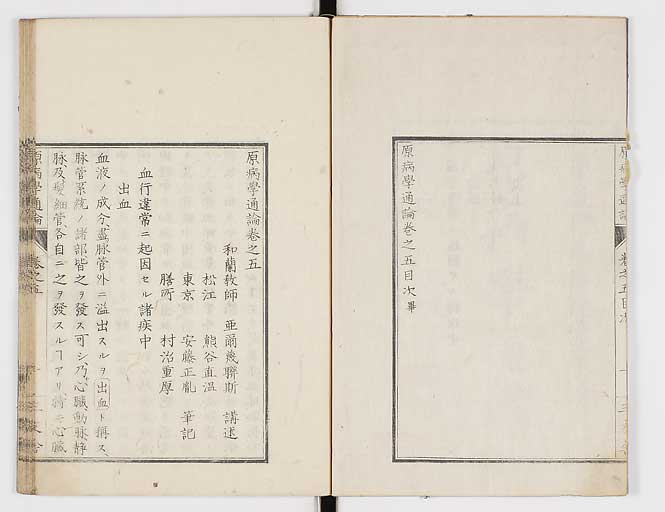 原病學通論卷之五目次畢
原病學通論卷之五
和蘭敎師 亜爾蔑聯斯 講述
松江 熊谷直温
東京 安藤正胤 筆記
膳所 村治重厚
血行違常ニ起因セル諸疾中
出血
血液ノ成分盡脉管外ニ溢出スルヲ出血ト稱ス
脉管系統ノ諸部皆之ヲ發ス可シ乃心臓動脉静
脉及髮細管各自ニ之ヲ發スルヿアリ
原病學通論
卷之五
卷之五目次